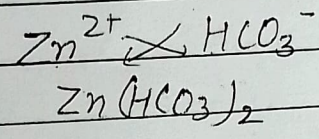 Zn²⁺ HCO₃⁻
Zn(HCO₃)₂